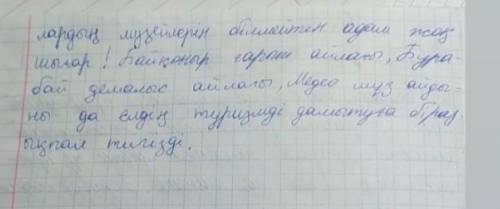 лардың музейлерін білмейтін адам жоқ
шығар! Байқоңыр ғарыш айлағы, Бура-
бай демалыс айлағы, Медео мұз айды-
ны да елдің туризмді дамытуға біраз
ықпал тигізді.